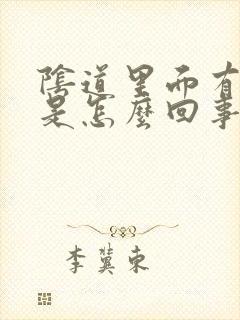 陰道里而有
是怎麼回事
李冀東